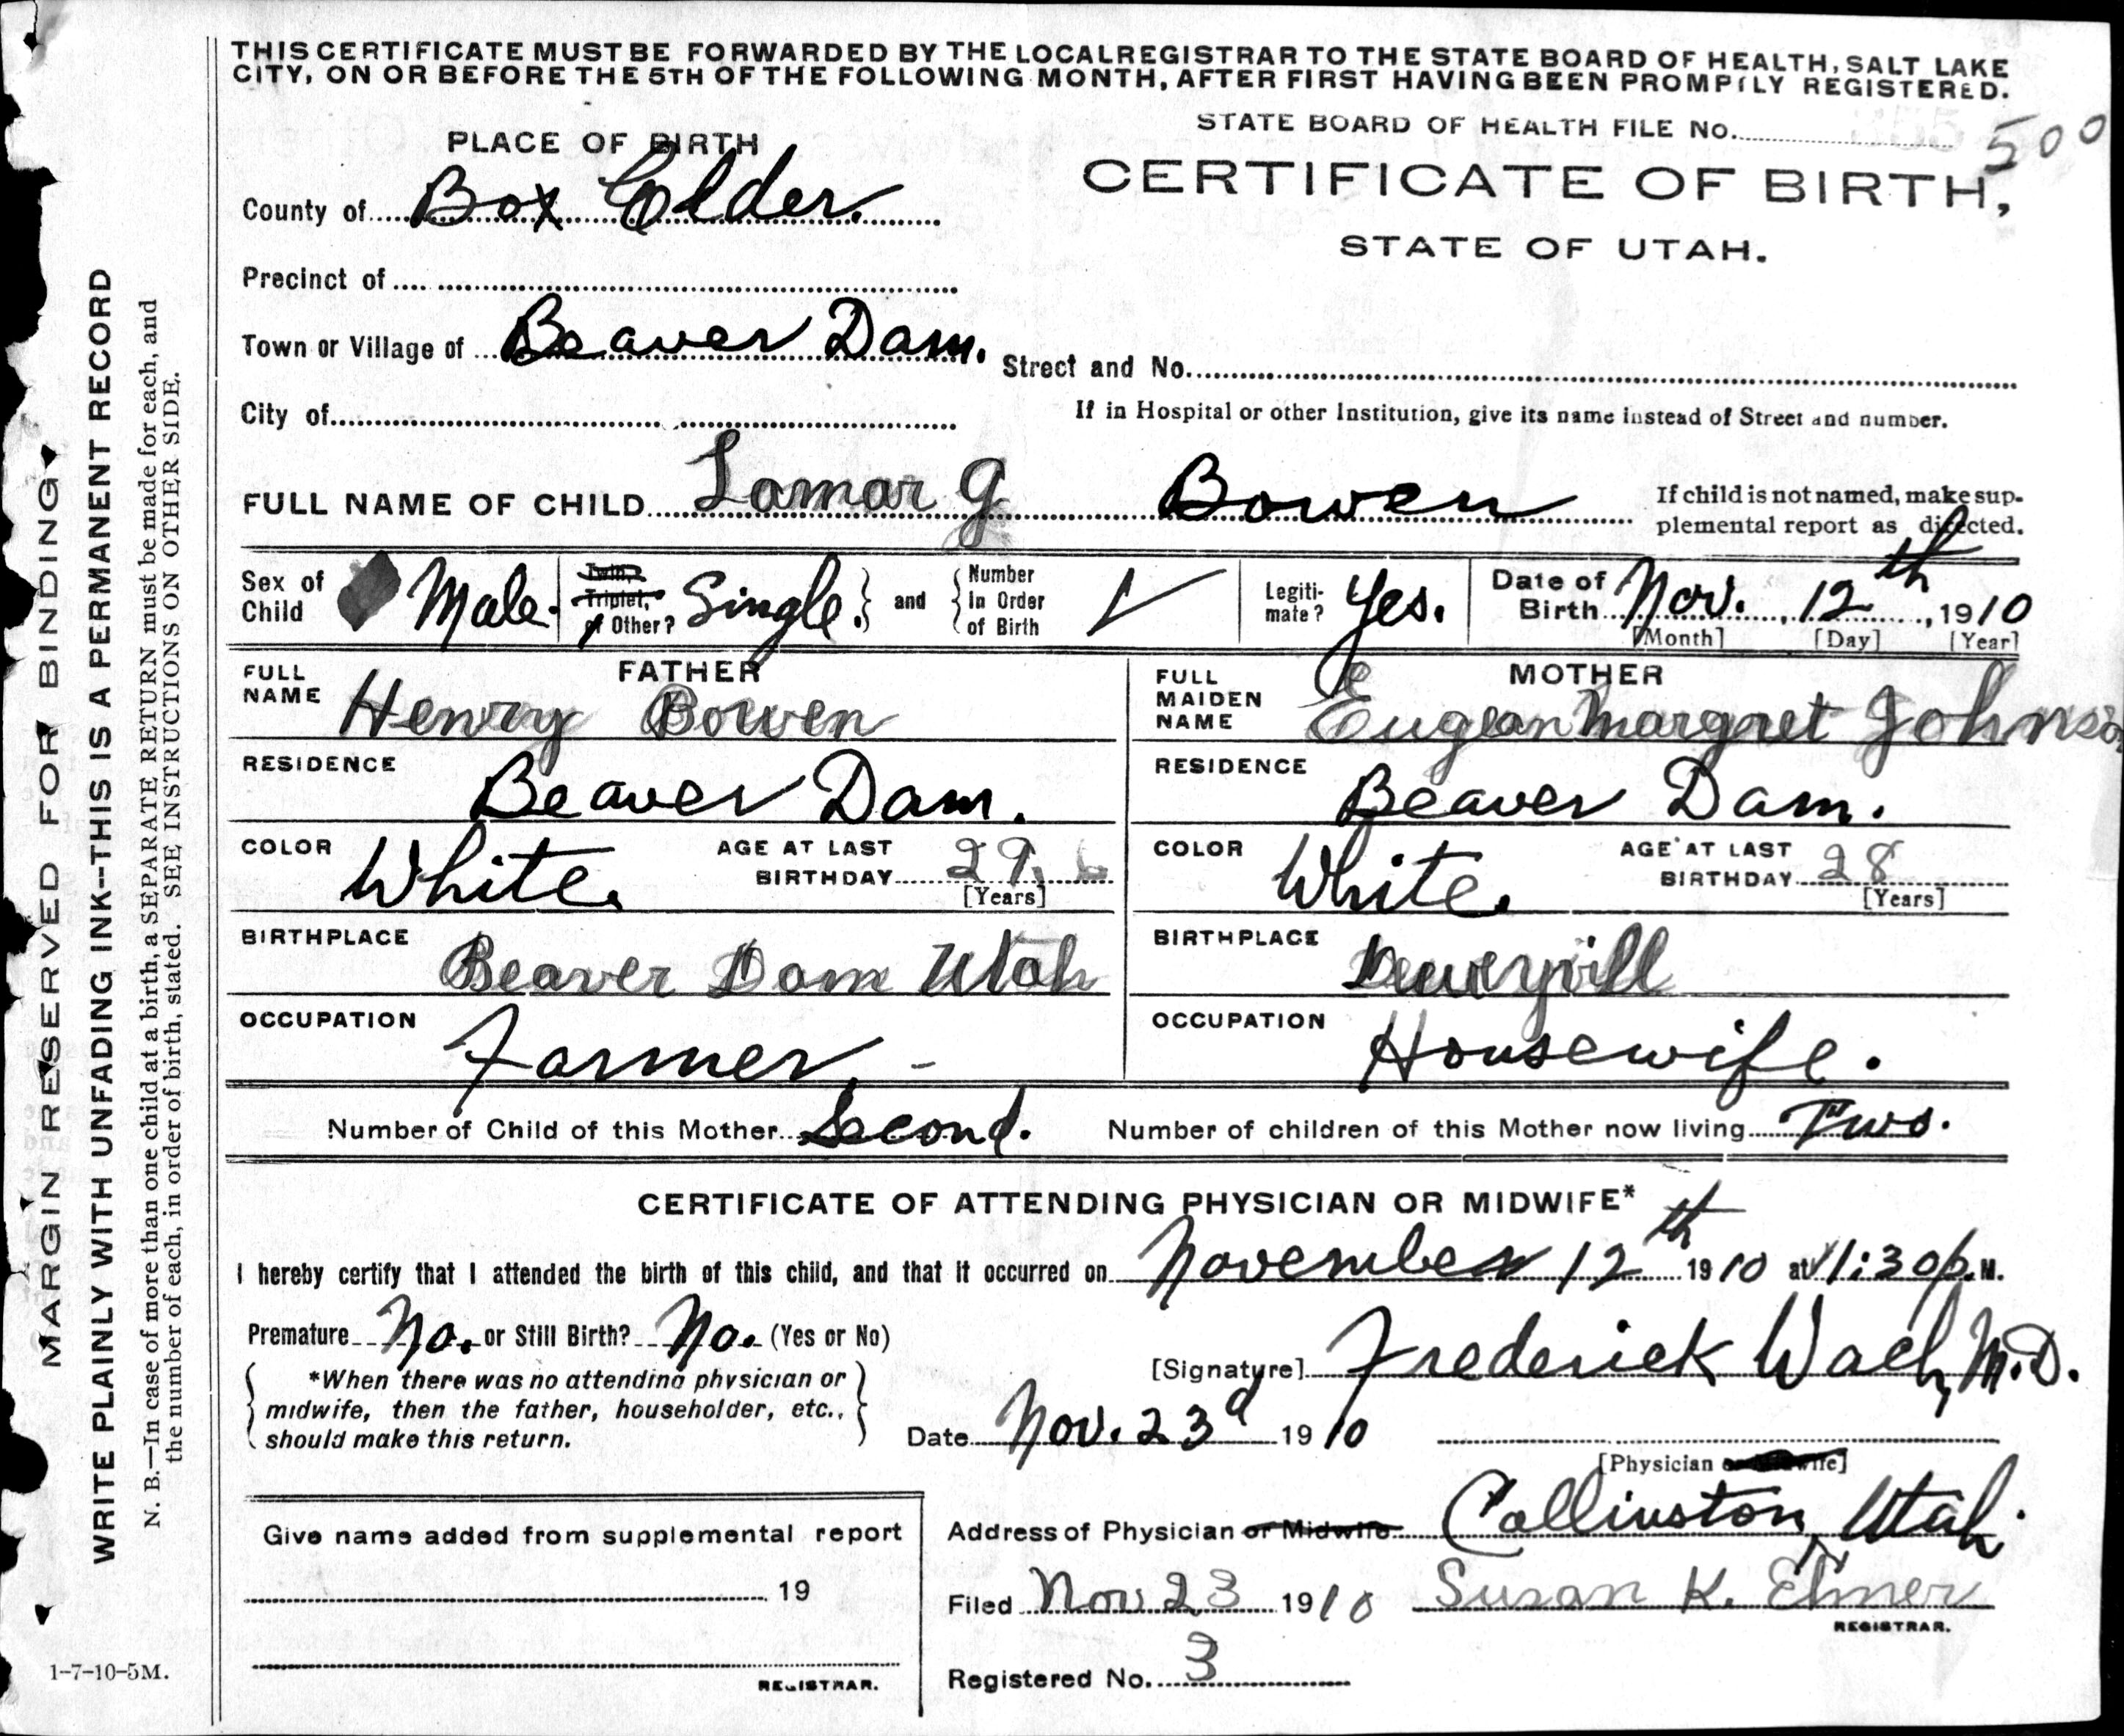 THIS CERTIFICATE MUST BE FORWARDED BY THE LOCAL REGISTRAR TO THE STATE BOARD OF HEALTH, SALT LAKE
CITY, ON OR BEFORE THE 5TH OF THE FOLLOWING MONTH, AFTER FIRST HAVING BEEN PROMPTLY REGISTERED.
STATE BOARD OF HEALTH FILE No. 500
PLACE OF BIRTH
CERTIFICATE OF BIRTH,
STATE OF UTAH.
County of Box Elder.
Precinct of
Town or Village of Beaver Dam. Street and No.
City of If in Hospital or other Institution, give its name instead of Street and number.
FULL NAME OF CHILD Lamar G Bowen
If child is not named, make sup-
plemental report as directed.
Sex of
Child Male.
Twin,
Triplet,
or Other? Single. and
Number
In Order
of Birth
Legiti-
mate? Yes.
Date of
Birth Nov. 12th, 1910
[Month] [Day] [Year]
FATHER
FULL
NAME Henry Bowen
RESIDENCE
Beaver Dam.
COLOR White. AGE AT LAST
BIRTHDAY 29
[Years]
BIRTHPLACE
Beaver Dam Utah
OCCUPATION
Farmer. -
MOTHER
FULL
MAIDEN
NAME Eugean Margret Johnson
RESIDENCE
Beaver Dam.
COLOR White. AGE AT LAST
BIRTHDAY 28
[Years]
BIRTHPLACE
OCCUPATION
Housewife.
Number of Child of this Mother Second. Number of children of this Mother now living Two.
CERTIFICATE OF ATTENDING PHYSICIAN OR MIDWIFE*
I hereby certify that I attended the birth of this child, and that it occurred on November 12th 1910 at 11:30 p. M.
Premature No. or Still Birth? No. (Yes or No)
*When there was no attending physician or
midwife, then the father, householder, etc.,
should make this return.
[Signature] Frederick Wach, M.D.
Date Nov. 23d 1910
[Physician or Midwife]
Address of Physician or Midwife Collinston, Utah.
Give name added from supplemental report
19
REGISTRAR.
Filed Nov 23 1910 Susan K. Elmer
REGISTRAR.
Registered No. 3
1-7-10-5M.
MARGIN RESERVED FOR BINDING
WRITE PLAINLY WITH UNFADING INK--THIS IS A PERMANENT RECORD
N. B.—In case of more than one child at a birth, a SEPARATE RETURN must be made for each, and
the number of each, in order of birth, stated. SEE INSTRUCTIONS ON OTHER SIDE.